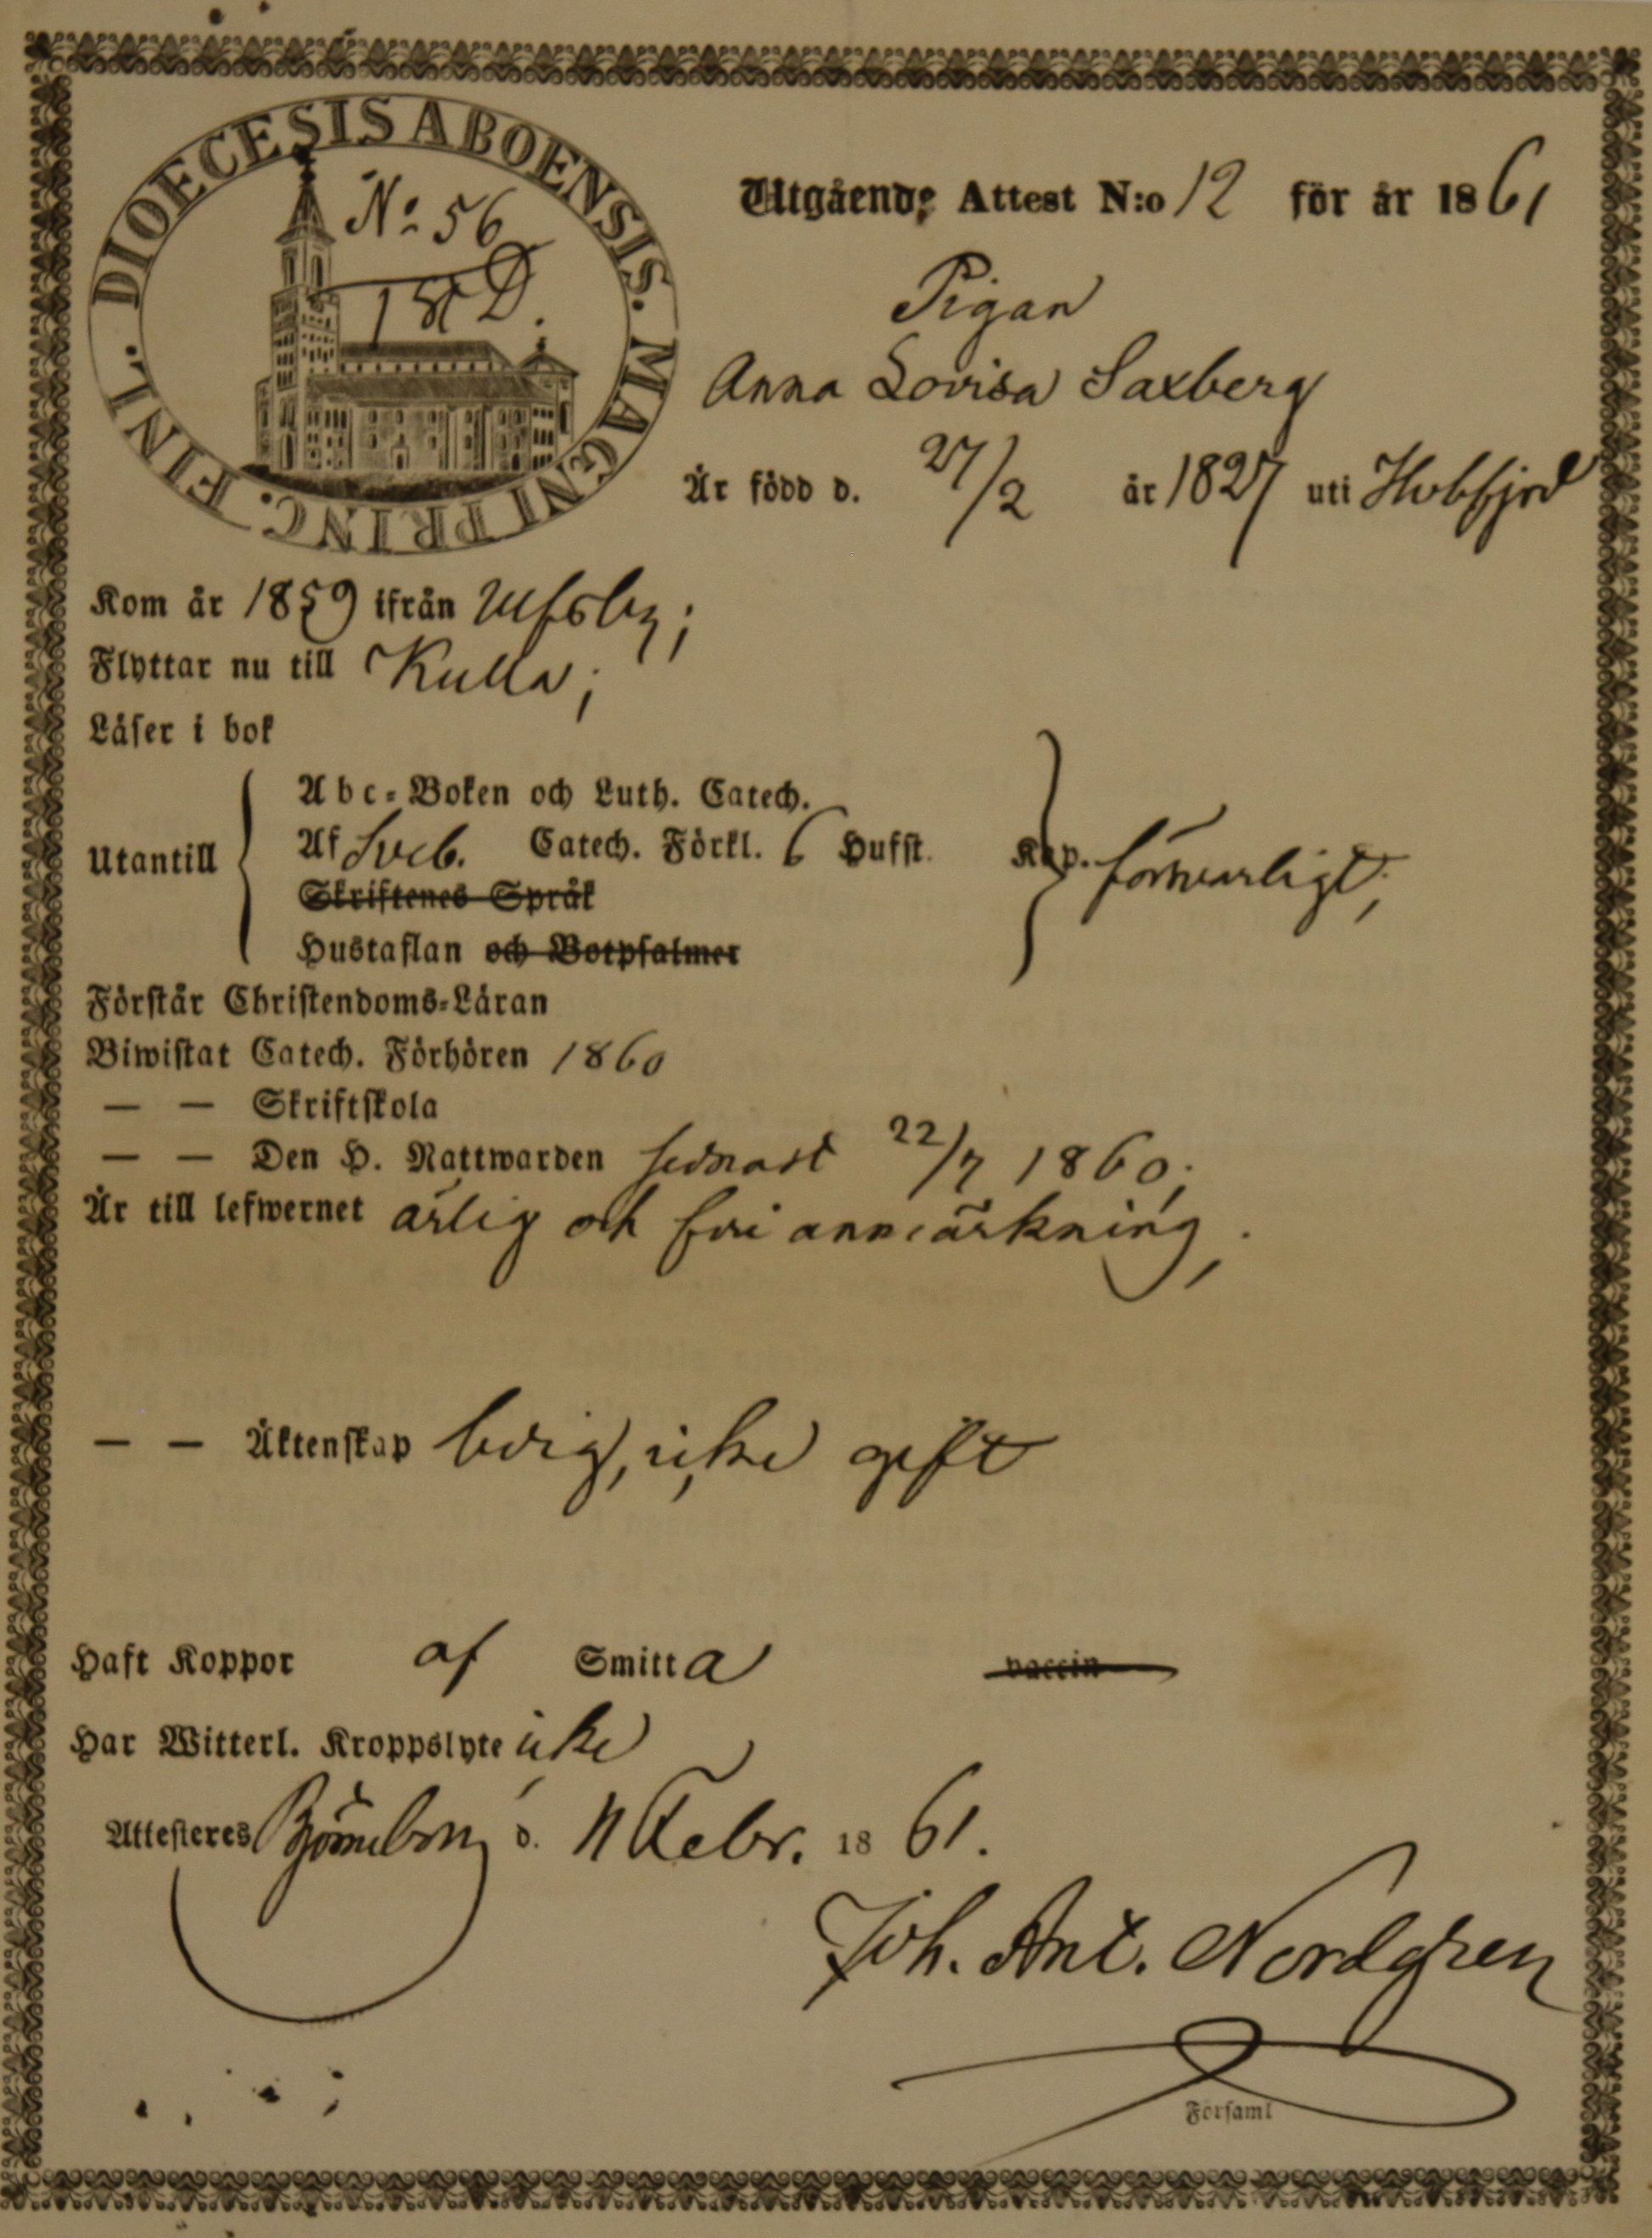 DIOECESIS ABOENSIS. MAGNI PRINC. FINL.
No: 56
Utgående Attest N:o 12 för år 1861
Pigan
Anna Lovisa Saxberg
Är född d. 27/2 år 1827 uti
Kom år 1859 ifrån Ulfsby;
Flyttar nu till Kulla;
Läser i bok
Utantill
Abc-Boken och Luth. Catech.
Af Sveb. Catech. Förkl. 6 Hufst. Kap. försvarligt;
Skriftenes Språk
Hustaflan och Botpsalmer
Förstår Christendoms-Läran
Biwistat Catech. Förhören 1860
— — Skriftskola
— — Den H. Nattwarden sednast 22/7 1860;
Är till lefwernet ärlig och fri anmärkning,
— — Äktenskap ledig, icke gift
Haft Koppor af Smitta vaccin
Har Witterl. Kroppslyte icke
Attesteres Björneborg d. 11 Febr. 1861.
Joh. Ant. Nordgren
Församl